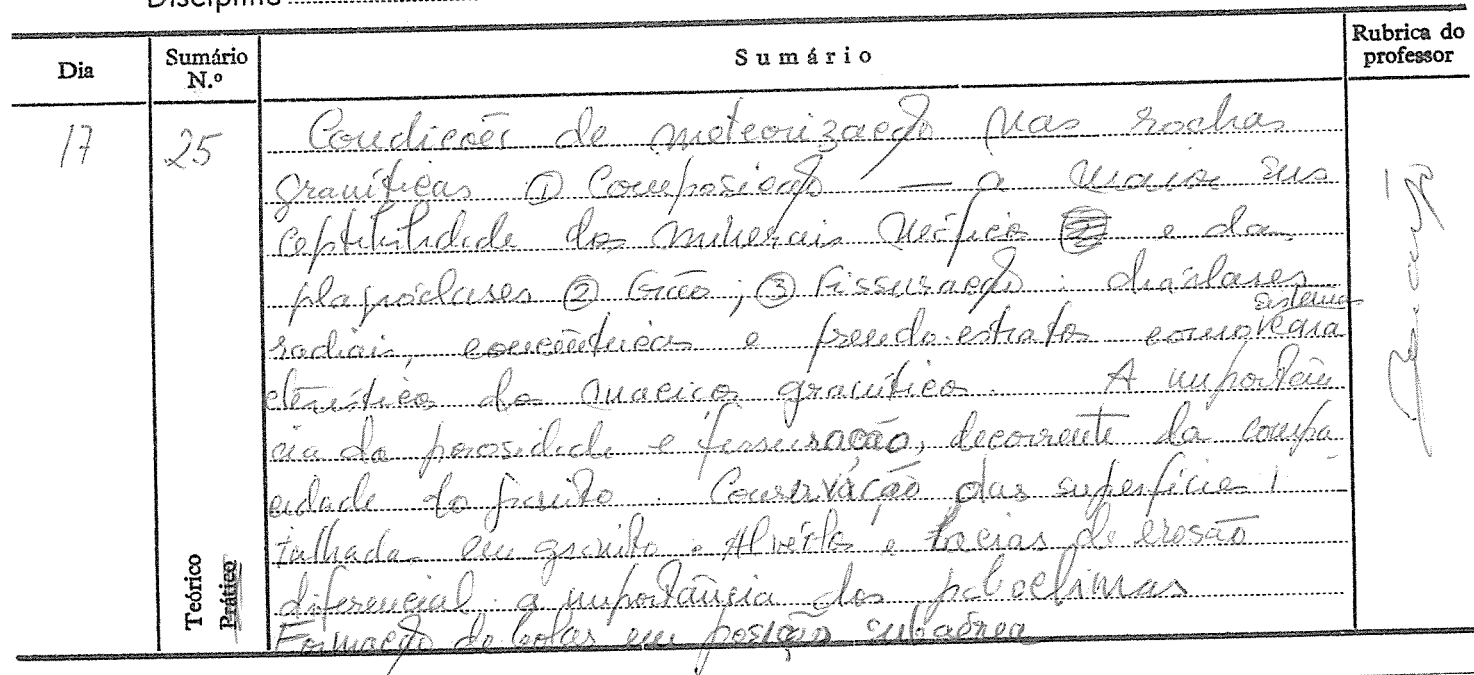 Disciplina
Dia
Sumário N.º
Sumário
Rubrica do professor
17
25
Condições de meteorização nas rochas
graníticas ① Composição — a maior sus
ceptibilidade dos minerais máficos e das
plagioclases ② Grão ; ③ Fissuração : diaclases
radiais, concêntricas e pseudo-estratos como sistema cara
cterístico do maciço granítico. A importân
cia da porosidade e fissuração, decorrente da compa
cidade do granito. Conservação das superfícies
talhadas em granito. Alvéolos e bacias de erosão
diferencial. a importância dos paleoclimas
Formação de bolas em posição subaérea
Teórico
Prático